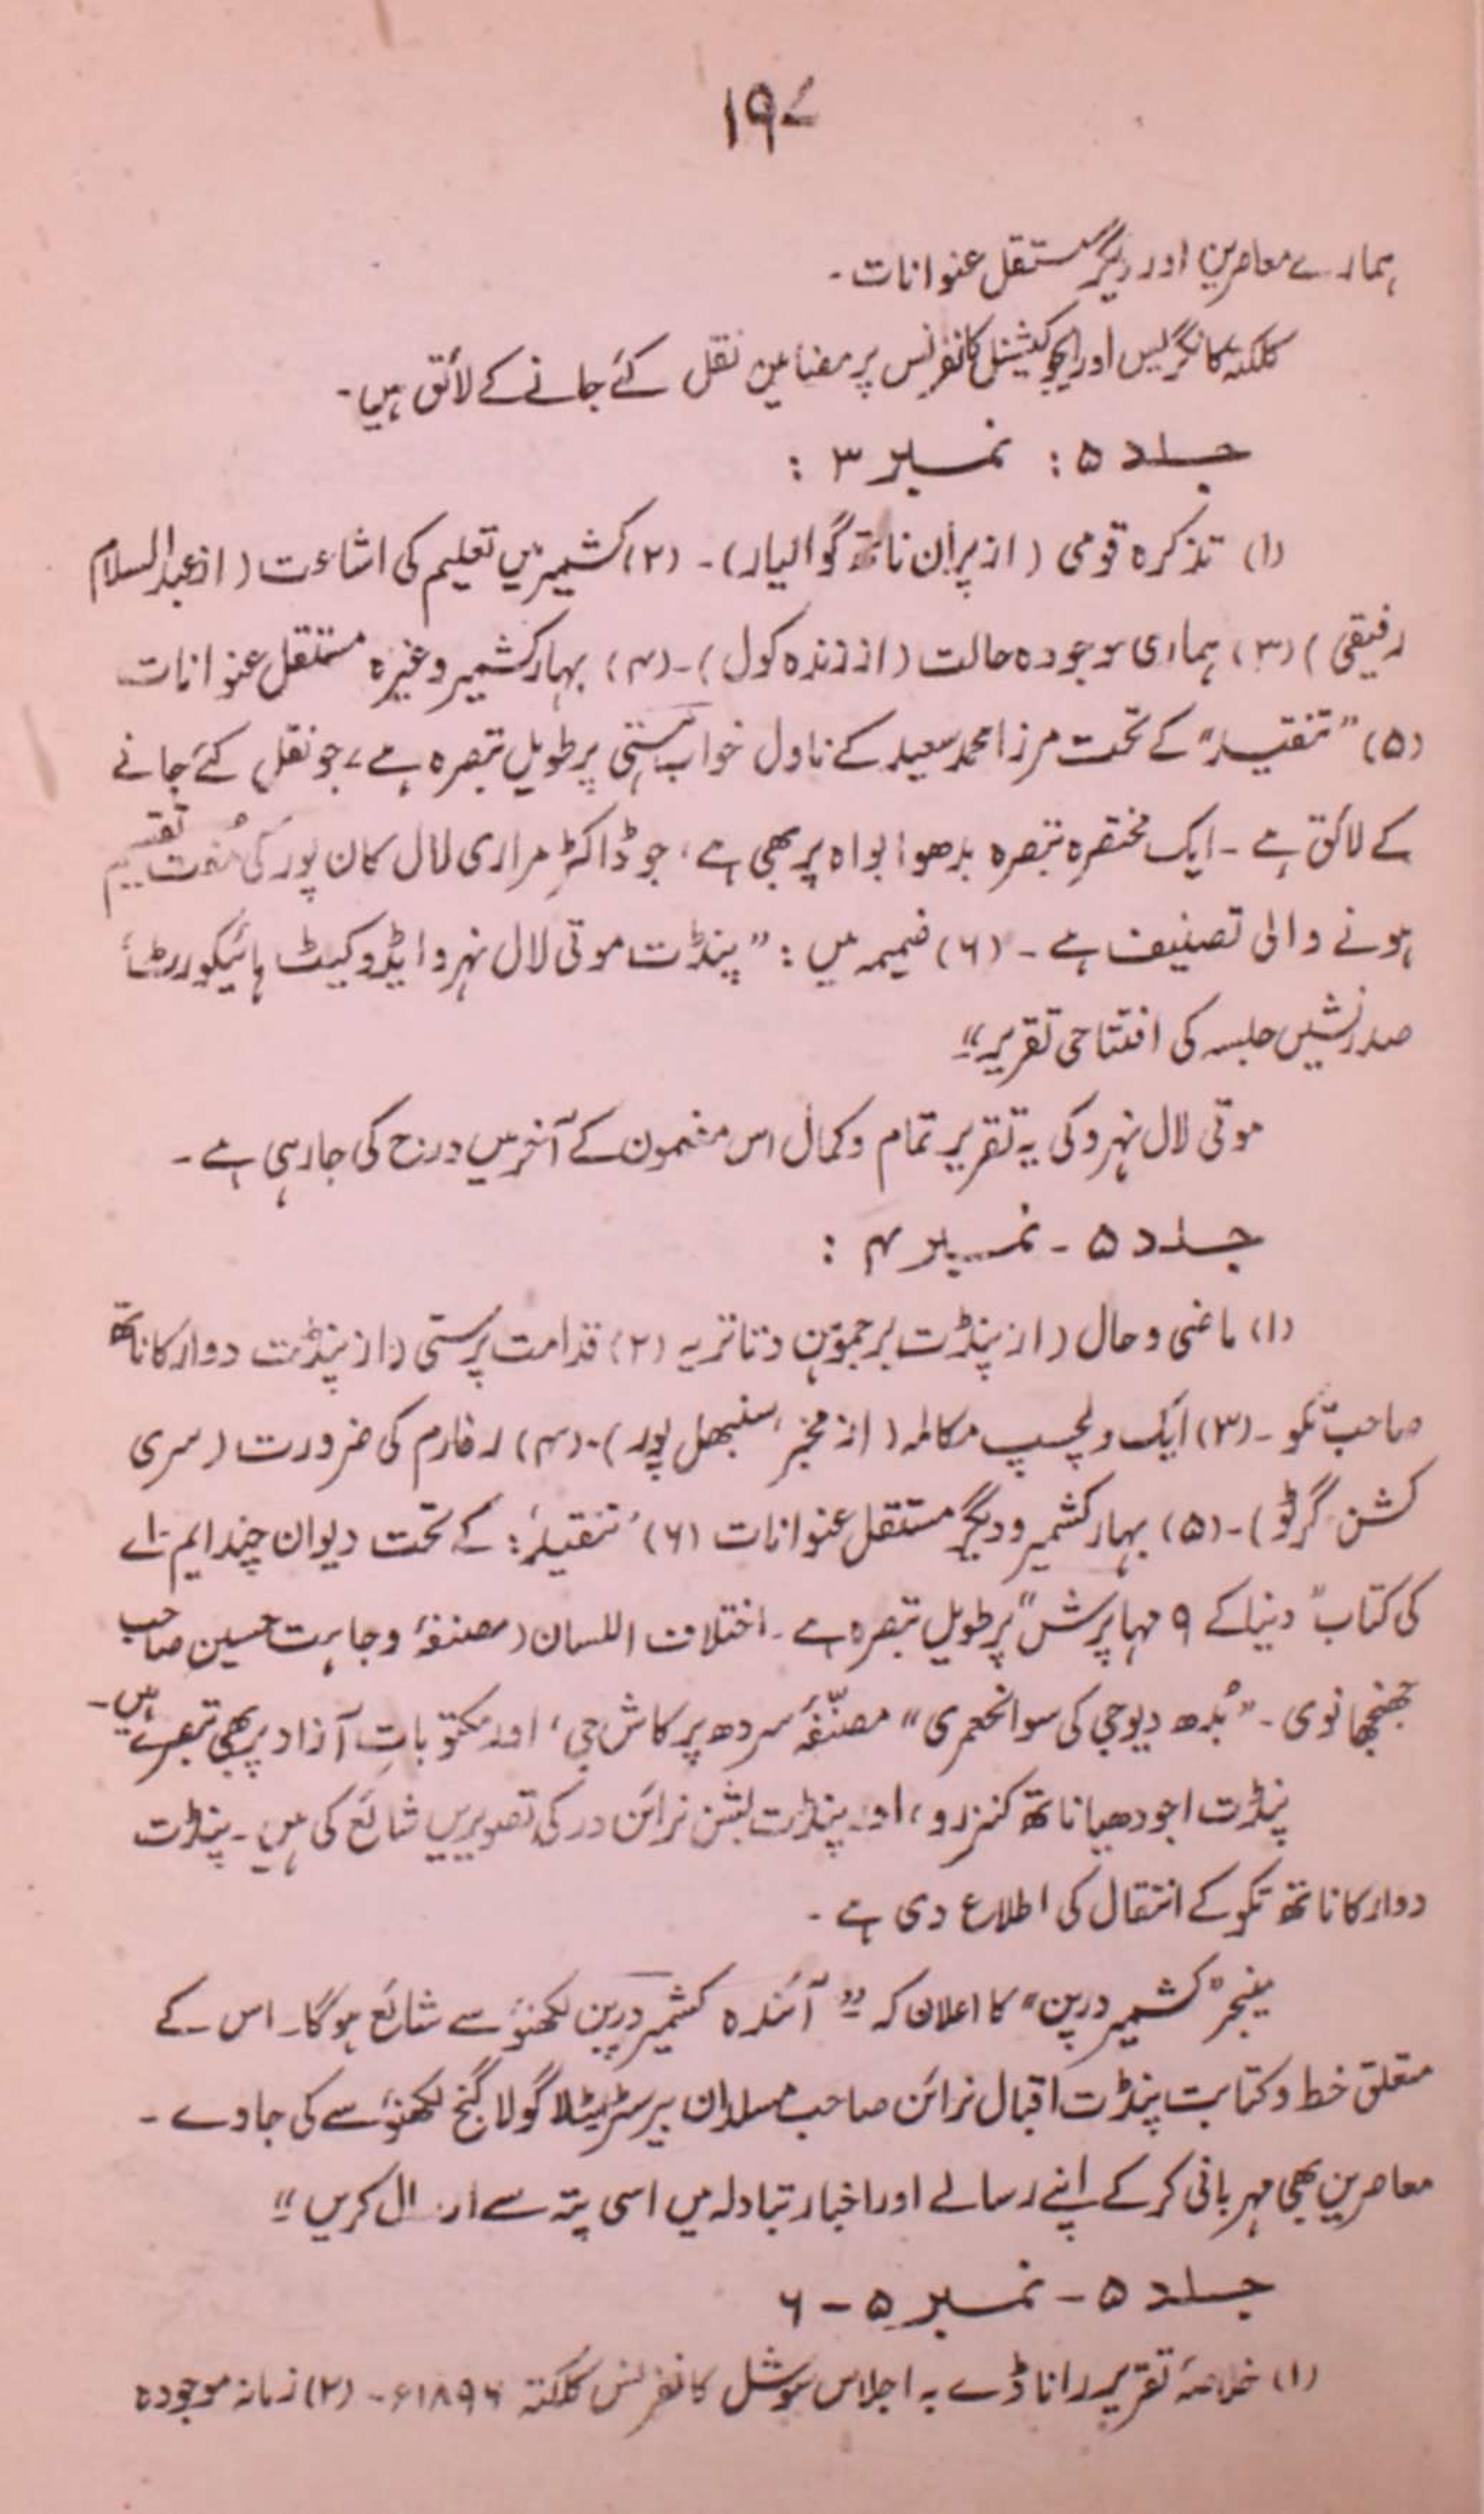 ۱۹۷
ہمارے معاصرین اور دیگر مستقل عنوانات ۔
کلکتہ کانگریس اور ایجوکیشنل کانفرنس پر مضامین نقل کئے جانے کے لائق ہیں ۔
جلد ۵ : نمبر ۳ :
(۱) تذکرہ قومی (از پران ناتھ گوالیار) ۔ (۲) کشمیر میں تعلیم کی اشاعت (از عبدالسلام
رفیقی) (۳) ہماری موجودہ حالت (از زندہ کول) ۔ (۴) بہار کشمیر وغیرہ مستقل عنوانات
(۵) "تنقید" کے تحت مرزا محمد سعید کے ناول خواب ہستی پر طویل تبصرہ ہے، جو نقل کئے جانے
کے لائق ہے ۔ ایک مختصرہ تبصرہ بدھوا بواہ پر بھی ہے، جو ڈاکٹر مراری لال کان پور کی مُفت تقسیم
ہونے والی تصنیف ہے ۔ (۶) ضمیمہ میں : "پنڈت موتی لال نہرو ایڈوکیٹ ہائیکورٹ
صدر نشیں جلسہ کی افتتاحی تقریر"۔
موتی لال نہرو کی یہ تقریر تمام و کمال اس مضمون کے آخر میں درج کی جا رہی ہے ۔
جلد ۵ ۔ نمبر ۴ :
(۱) ماضی و حال (از پنڈت برجموہن دتاتریہ (۲) قدامت پرستی (از پنڈت دوارکا ناتھ
صاحب تکو ۔ (۳) ایک دلچسپ مکالمہ (از مخبر، سنبھل پور) ۔ (۴) رفارم کی ضرورت (سری
کشن گرٹو) ۔ (۵) بہار کشمیر و دیگر مستقل عنوانات (۶) 'تنقید' : کے تحت دیوان چند ایم اے
کی کتاب "دنیا کے ۹ مہا پرش" پر طویل تبصرہ ہے ۔ اختلاف اللسان (مصنفۂ وجاہت حسین صاحب
جھنجھانوی ۔ "بُدھ دیوجی کی سوانحعمری" مصنّفۂ سردھ پرکاش جی، اور مکتوباتِ آزاد پر بھی تبصرے ہیں ۔
پنڈت اجودھیا ناتھ کنزرو، اور پنڈت بشن نرائن در کی تصویریں شائع کی ہیں ۔ پنڈت
دوارکا ناتھ تکو کے انتقال کی اطلاع دی ہے ۔
مینجر "کشمیر درپن" کا اعلان کہ "آئندہ کشمیر درپن لکھنؤ سے شائع ہوگا ۔ اس کے
متعلق خط و کتابت پنڈت اقبال نرائن صاحب مسلدان بیرسٹر گولا گنج لکھنؤ سے کی جاوے ۔
معاصرین بھی مہربانی کرکے اپنے رسالے اور اخبار تبادلہ میں اسی پتہ سے ارسال کریں"۔
جلد ۵ ۔ نمبر ۵ ۔ ۶
(۱) خلاصۂ تقریر راناڈے بہ اجلاس سوشل کانفرنس کلکتہ ۱۸۹۶ء ۔ (۲) زمانہ موجودہ